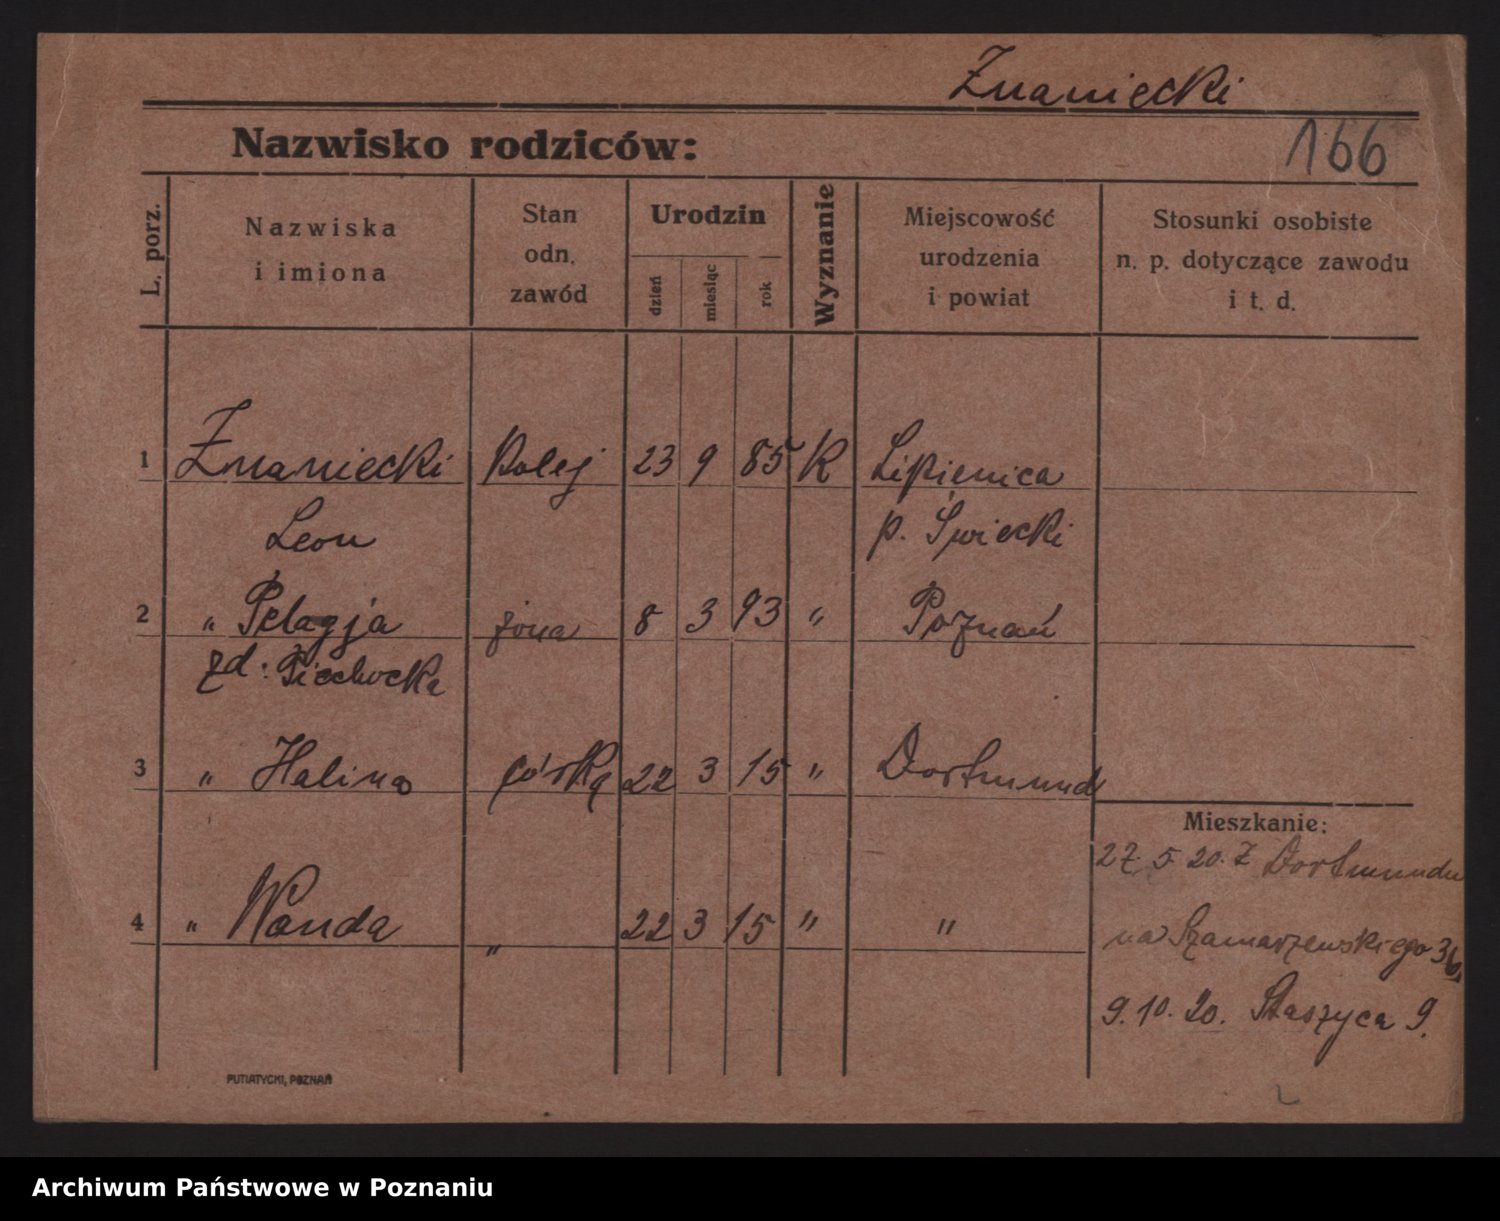 Znaniecki
Nazwisko rodziców:
166
L. porz.
Nazwiska
i imiona
Stan
odn.
zawód
Urodzin
dzień
miesiąc
rok
Wyznanie
Miejscowość
urodzenia
i powiat
Stosunki osobiste
n. p. dotyczące zawodu
i t. d.
1 Znaniecki Kolej 23 9 85 K Lipienica
Leon p. Świecki
2 " Pelagja żona 8 3 93 " Poznań
zd: Piechocka
3 " Halina córka 22 3 15 " Dortmund
Mieszkanie:
27 5 20. Z Dortmundu
4 " Wanda " 22 3 15 " "
na Szamarzewskiego 36,
9. 10. 20. Staszyca 9.
PUTIATYCKI, POZNAŃ
Archiwum Państwowe w Poznaniu